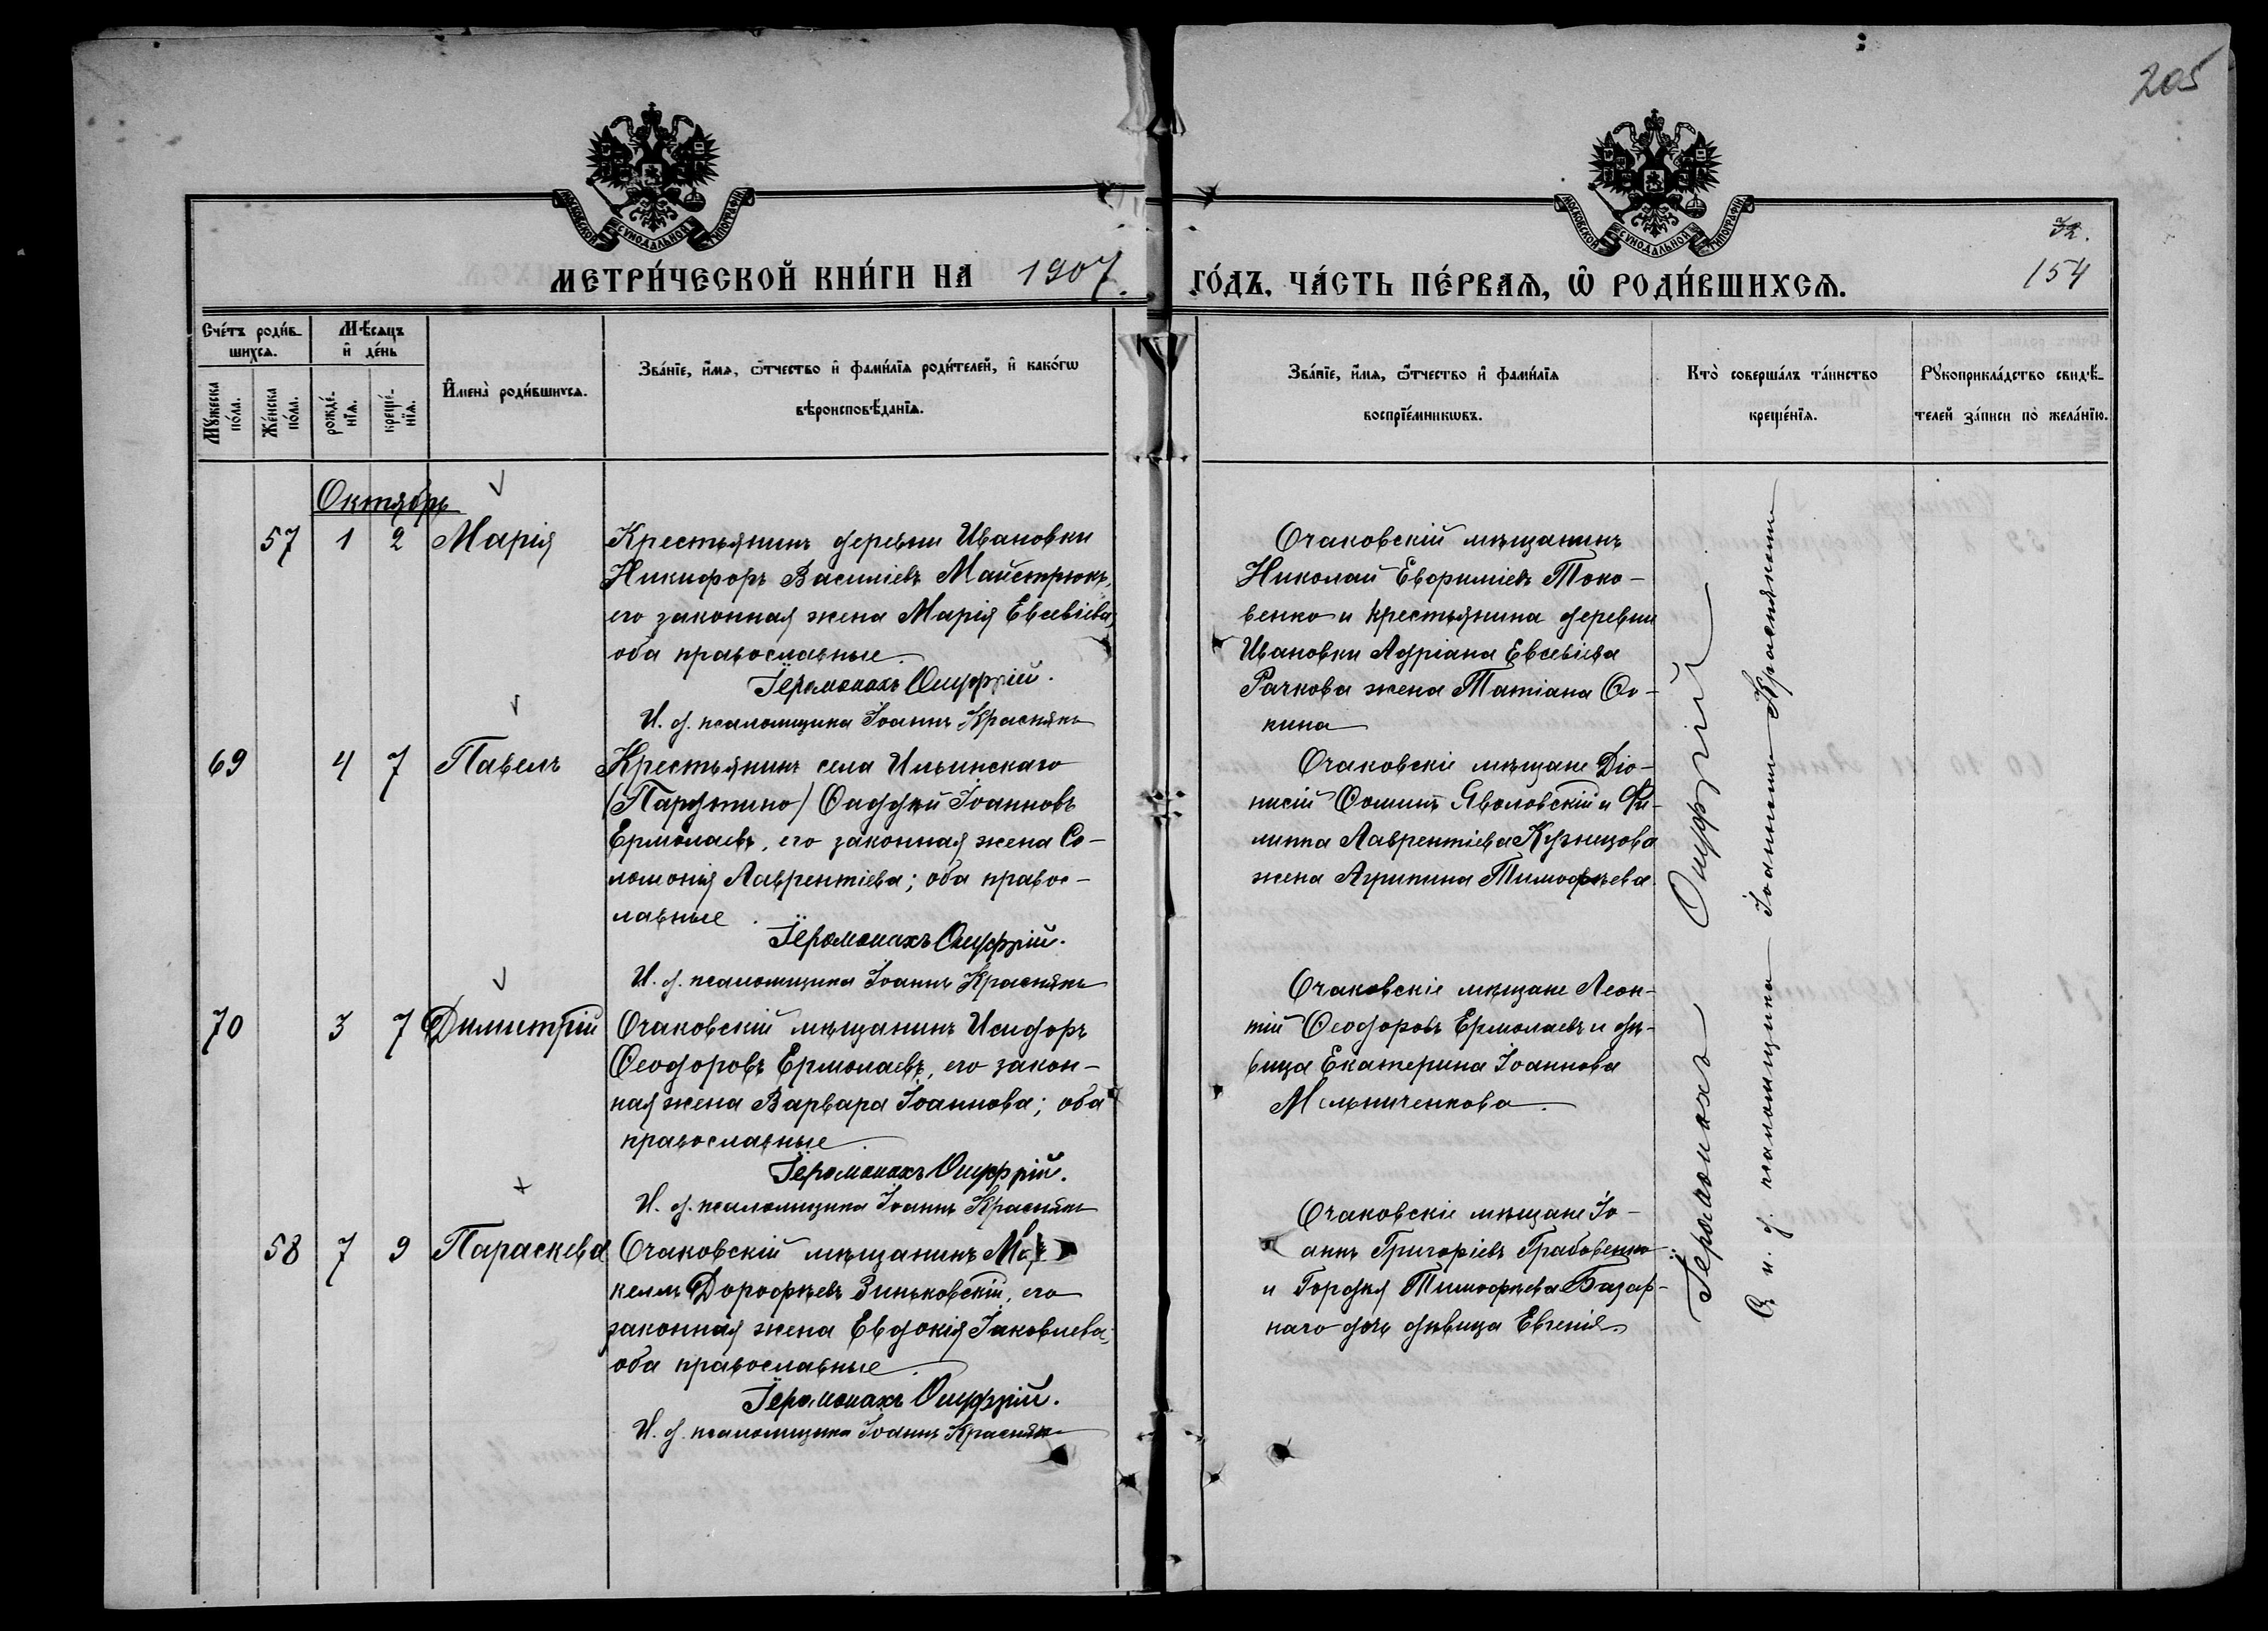 205
МОСКОВСКОЙ СУНОДАЛЬНОЙ ТИПОГРАФІИ
МОСКОВСКОЙ СУНОДАЛЬНОЙ ТИПОГРАФІИ
МЕТРИ́ЧЕСКОЙ КНИ́ГИ НА 1907. ГО́ДЪ, ЧА́СТЬ ПЕ́РВАѦ, Ѽ РОДИ́ВШИХСѦ.
154
Сче́тъ роди́в-
шихсѧ.
Мꙋ́жеска по́ла.
Же́нска по́ла.
Мѣ́сѧцъ
и҆ де́нь
рожде́-
нїѧ.
креще́-
нїѧ.
И҆мена̀ роди́вшихсѧ.
Зва́нїе, и҆́мѧ, ѻ҆́тчество и҆ фами́лїѧ роди́телей, и҆ како́гѡ
вѣроисповѣ́данїѧ.
Зва́нїе, и҆́мѧ, ѻ҆́тчество и҆ фами́лїѧ
воспрїе́мникѡвъ.
Кто̀ соверша́лъ та́инство
креще́нїѧ.
Рꙋкоприкла́дство свидѣ́-
телей за́писи по жела́нїю.
Октябрь
57 1 2 Марія
Крестьянинъ деревни Ивановки
Никифоръ Василіевъ Майстрюкъ,
его законная жена Марія Евсевіева;
оба православные.
Іеромонахъ Онуфрій.
И. д. псаломщика Іоаннъ Краснякъ
Очаковскій мѣщанинъ
Николай Евфиміевъ Токо-
венко и крестьянина деревни
Ивановки Адріана Евсевіева
Рачкова жена Татіана Ѳо-
кина
69 4 7 Павелъ
Крестьянинъ села Ильинскаго
(Парутино) Ѳаддей Іоанновъ
Ермолаевъ, его законная жена Со-
ломонія Лаврентіева; оба правос-
лавные.
Іеромонахъ Онуфрій.
И. д. псаломщика Іоаннъ Краснякъ
Очаковскіе мѣщане Діо-
нисій Ѳоминъ Яволовскій и Фи-
липпа Лаврентіева Кузнецова
жена Агрипина Тимофѣева
70 3 7 Димитрій
Очаковскій мѣщанинъ Исидоръ
Ѳеодоровъ Ермолаевъ, его закон-
ная жена Варвара Іоаннова; оба
православные.
Іеромонахъ Онуфрій.
И. д. псаломщика Іоаннъ Краснякъ
Очаковскіе мѣщане Леон-
тій Ѳеодоровъ Ермолаевъ и дѣ-
вица Екатерина Іоаннова
Мельниченкова.
58 7 9 Параскева
Очаковскій мѣщанинъ Мар-
келлъ Дорофѣевъ Зиньковскій, его
законная жена Евдокія Іаковлева;
оба православные.
Іеромонахъ Онуфрій.
И. д. псаломщика Іоаннъ Краснякъ
Очаковскіе мѣщане Іо-
аннъ Григоріевъ Грабовенко
и Гордѣя Тимофѣева Базар-
наго дочь дѣвица Евгенія.
Іеромонахъ Онуфрій
Съ и. д. псаломщика Іоанномъ Краснякомъ